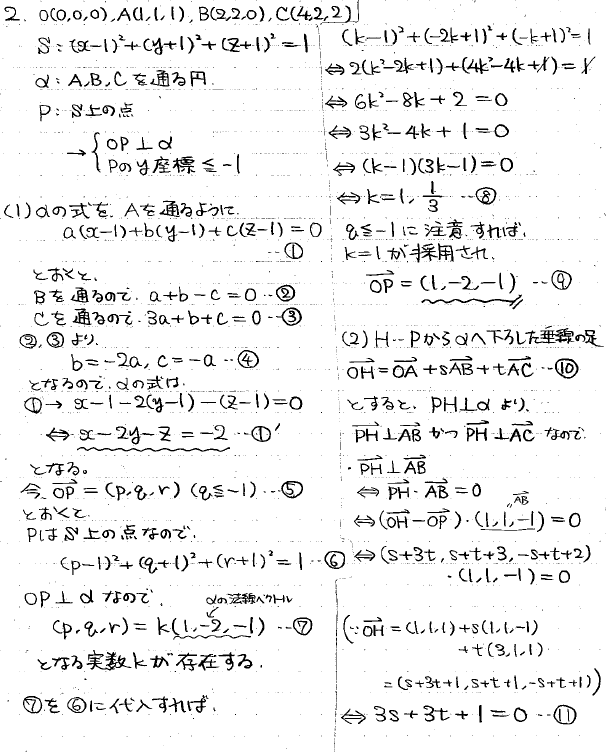 2. O(0,0,0), A(1,1,1), B(2,2,0), C(4,2,2)
S : (x-1)²+(y+1)²+(z+1)²=1
α : A, B, C を通る円
P : S上の点
→ { OP⊥α
Pのy座標≦-1
(1) αの式を、Aを通るように
a(x-1)+b(y-1)+c(z-1)=0
…①
とおくと、
Bを通るので a+b-c=0 …②
Cを通るので 3a+b+c=0 …③
②,③より
b=-2a, c=-a …④
となるので、αの式は
①→ x-1-2(y-1)-(z-1)=0
⇔ x-2y-z=-2 …①'
となる。
今 OP=(p,q,r) (q≦-1) …⑤
とおくと
PはS上の点なので、
(p-1)²+(q+1)²+(r+1)²=1 …⑥
OP⊥αなので、 αの法線ベクトル
(p,q,r)=k(1,-2,-1) …⑦
となる実数kが存在する.
⑦を⑥に代入すれば、
(k-1)²+(-2k+1)²+(-k+1)²=1
⇔ 2(k²-2k+1)+(4k²-4k+1)=1
⇔ 6k²-8k+2=0
⇔ 3k²-4k+1=0
⇔ (k-1)(3k-1)=0
⇔ k=1, 1/3 …⑧
q≦-1に注意すれば、
k=1が採用され、
OP=(1,-2,-1) …⑨
(2) H…Pからαへ下ろした垂線の足
OH=OA+sAB+tAC …⑩
とすると、PH⊥αより、
PH⊥AB かつ PH⊥AC なので
・PH⊥AB
⇔ PH・AB=0
AB
⇔(OH-OP)・(1,1,-1)=0
⇔(s+3t, s+t+3, -s+t+2)
・(1,1,-1)=0
(∵OH=(1,1,1)+s(1,1,-1)
+t(3,1,1)
=(s+3t+1, s+t+1, -s+t+1))
⇔ 3s+3t+1=0 …⑪